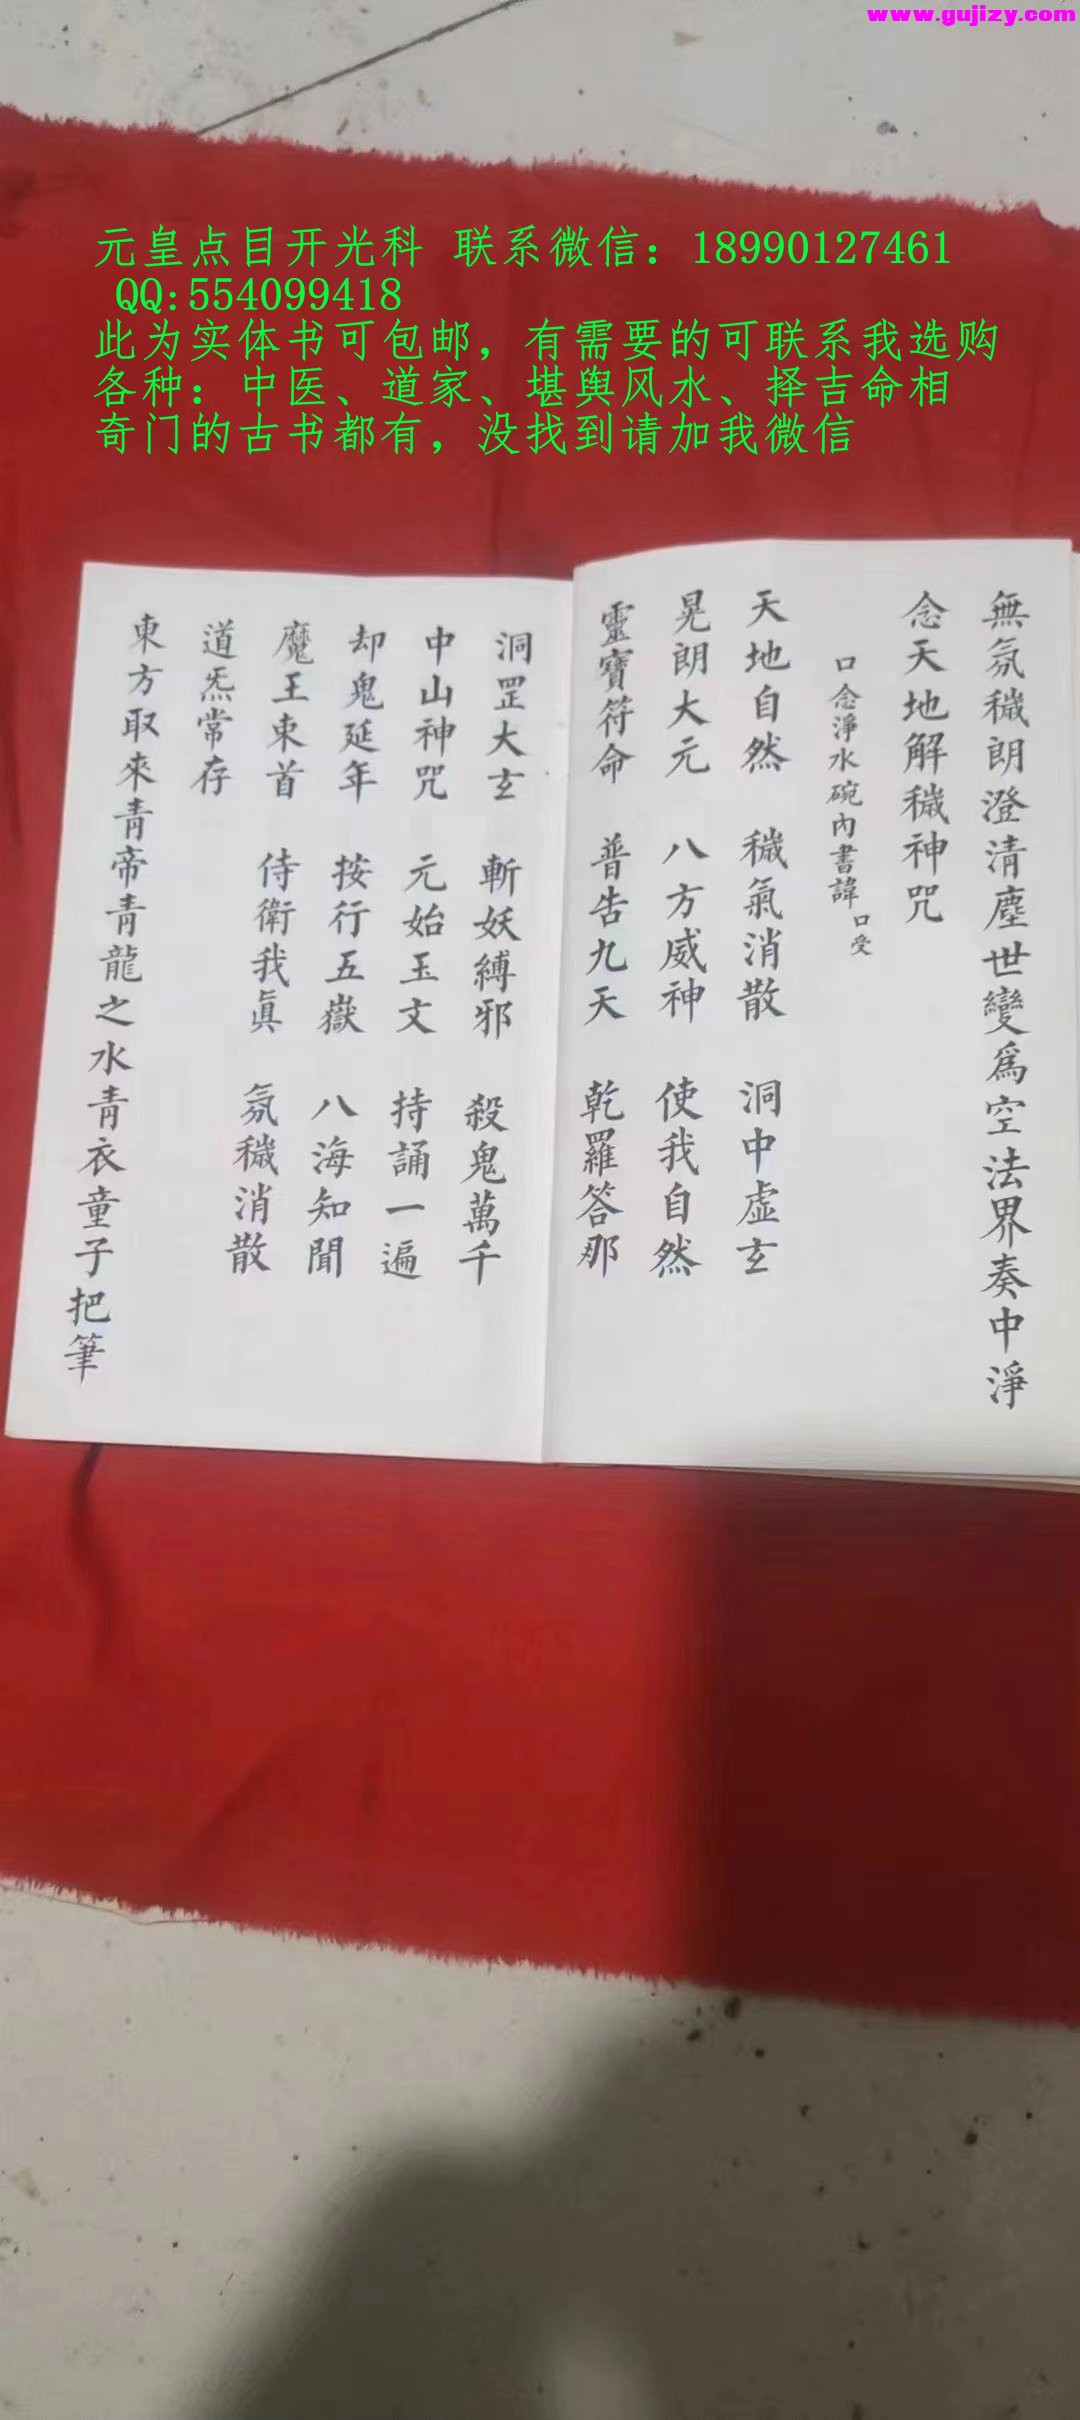 www.gujizy.com
元皇点目开光科 联系微信：18990127461
QQ:554099418
此为实体书可包邮，有需要的可联系我选购
各种：中医、道家、堪舆风水、择吉命相
奇门的古书都有，没找到请加我微信
無氛穢朗澄清塵世變爲空法界奏中淨
念天地解穢神咒
口念淨水碗內書諱 口受
天地自然 穢氣消散 洞中虛玄
晃朗大元 八方威神 使我自然
靈寶符命 普告九天 乾羅答那
洞罡大玄 斬妖縛邪 殺鬼萬千
中山神咒 元始玉文 持誦一遍
却鬼延年 按行五嶽 八海知聞
魔王束首 侍衛我真 氛穢消散
道炁常存
東方取來青帝青龍之水青衣童子把筆